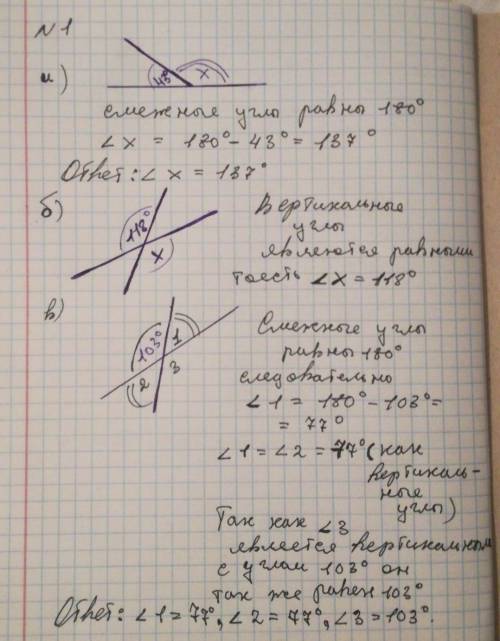 N 1
а)
43° x
смежные углы равны 180°
∠ x = 180° - 43° = 137°
Ответ: ∠ x = 137°
б)
118°
x
Вертикальные
углы
являются равными
тоесть ∠ x = 118°
в)
103° 1
2 3
Смежные углы
равны 180°
следовательно
∠ 1 = 180° - 103° =
= 77°
∠ 1 = ∠ 2 = 77° (как
вертикаль-
ные
углы)
Так как ∠ 3
является вертикальным
с углом 103° он
так же равен 103°
Ответ: ∠ 1 = 77°, ∠ 2 = 77°, ∠ 3 = 103°.